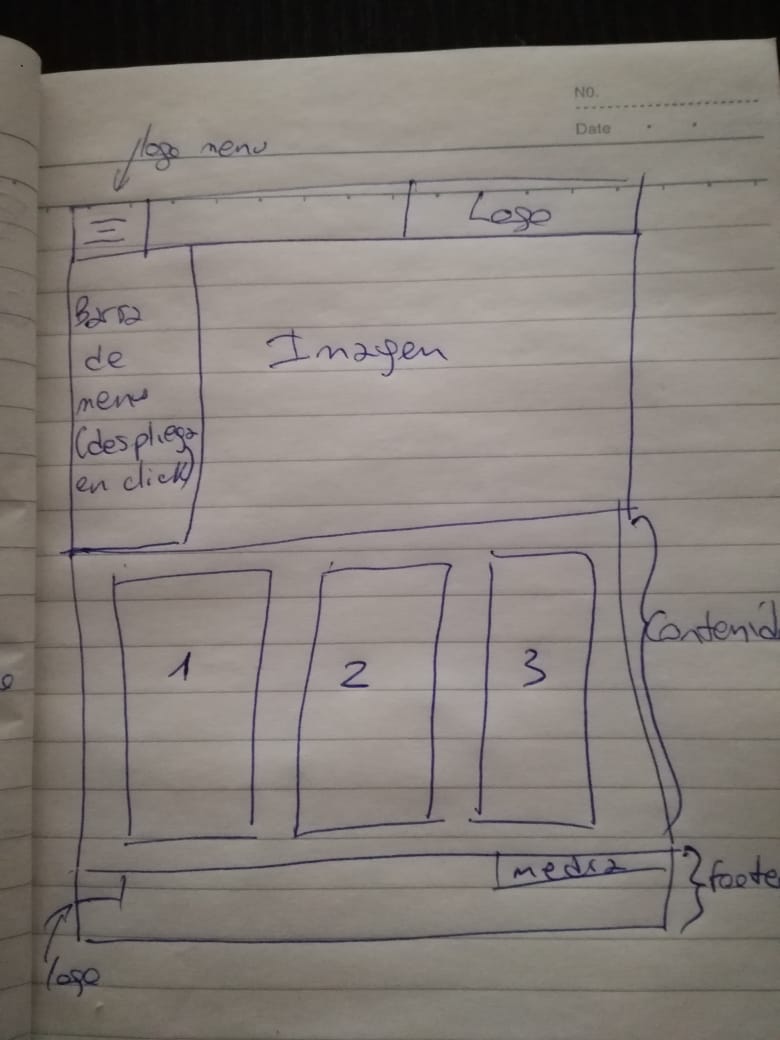 NO.
Date
logo menu
Logo
Barra
de
menu
(despliega
en click)
Imagen
1
2
3
Contenid
media
foote
logo